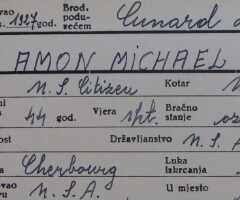 vao 1927 god. Brod. podu- Cunard
s. zećem
AMON MICHAEL
N. S. Citizen Kotar
ni 44 god. Vjera rkt. Bračno
s stanje
ost Državljanstvo N. S. A
a Cherbourg Luka
iskrcanja
ovao N. S. A. U mjesto